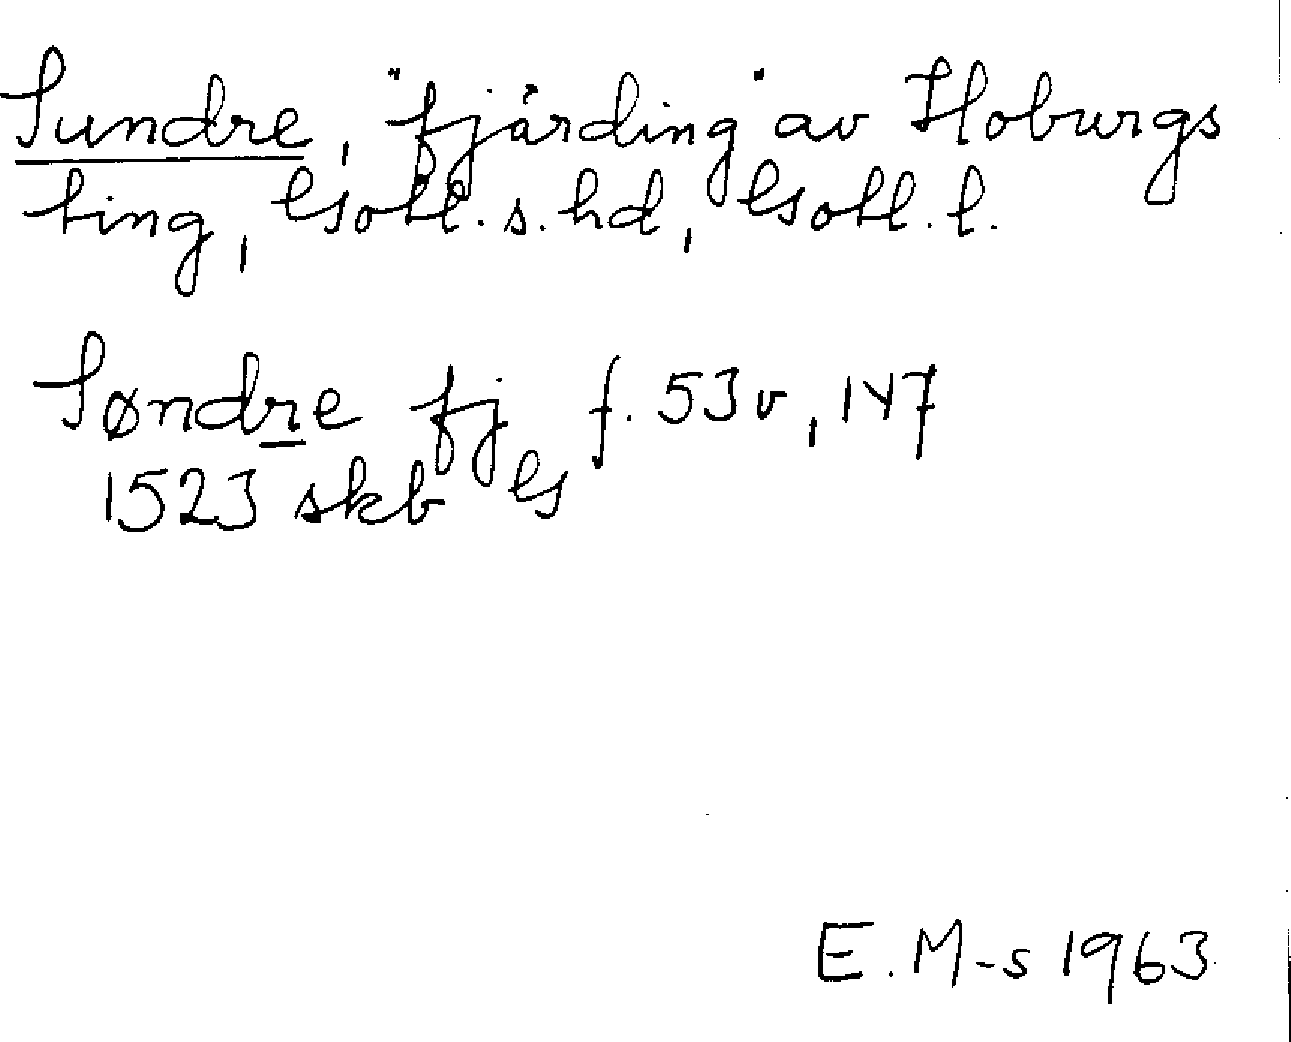 Sundre, "fjärding" av Hoburgs
ting, Gotl. s. hd, Gotl. l.
Søndre fj f. 53v, 147
1523 skb G
E. M-s 1963